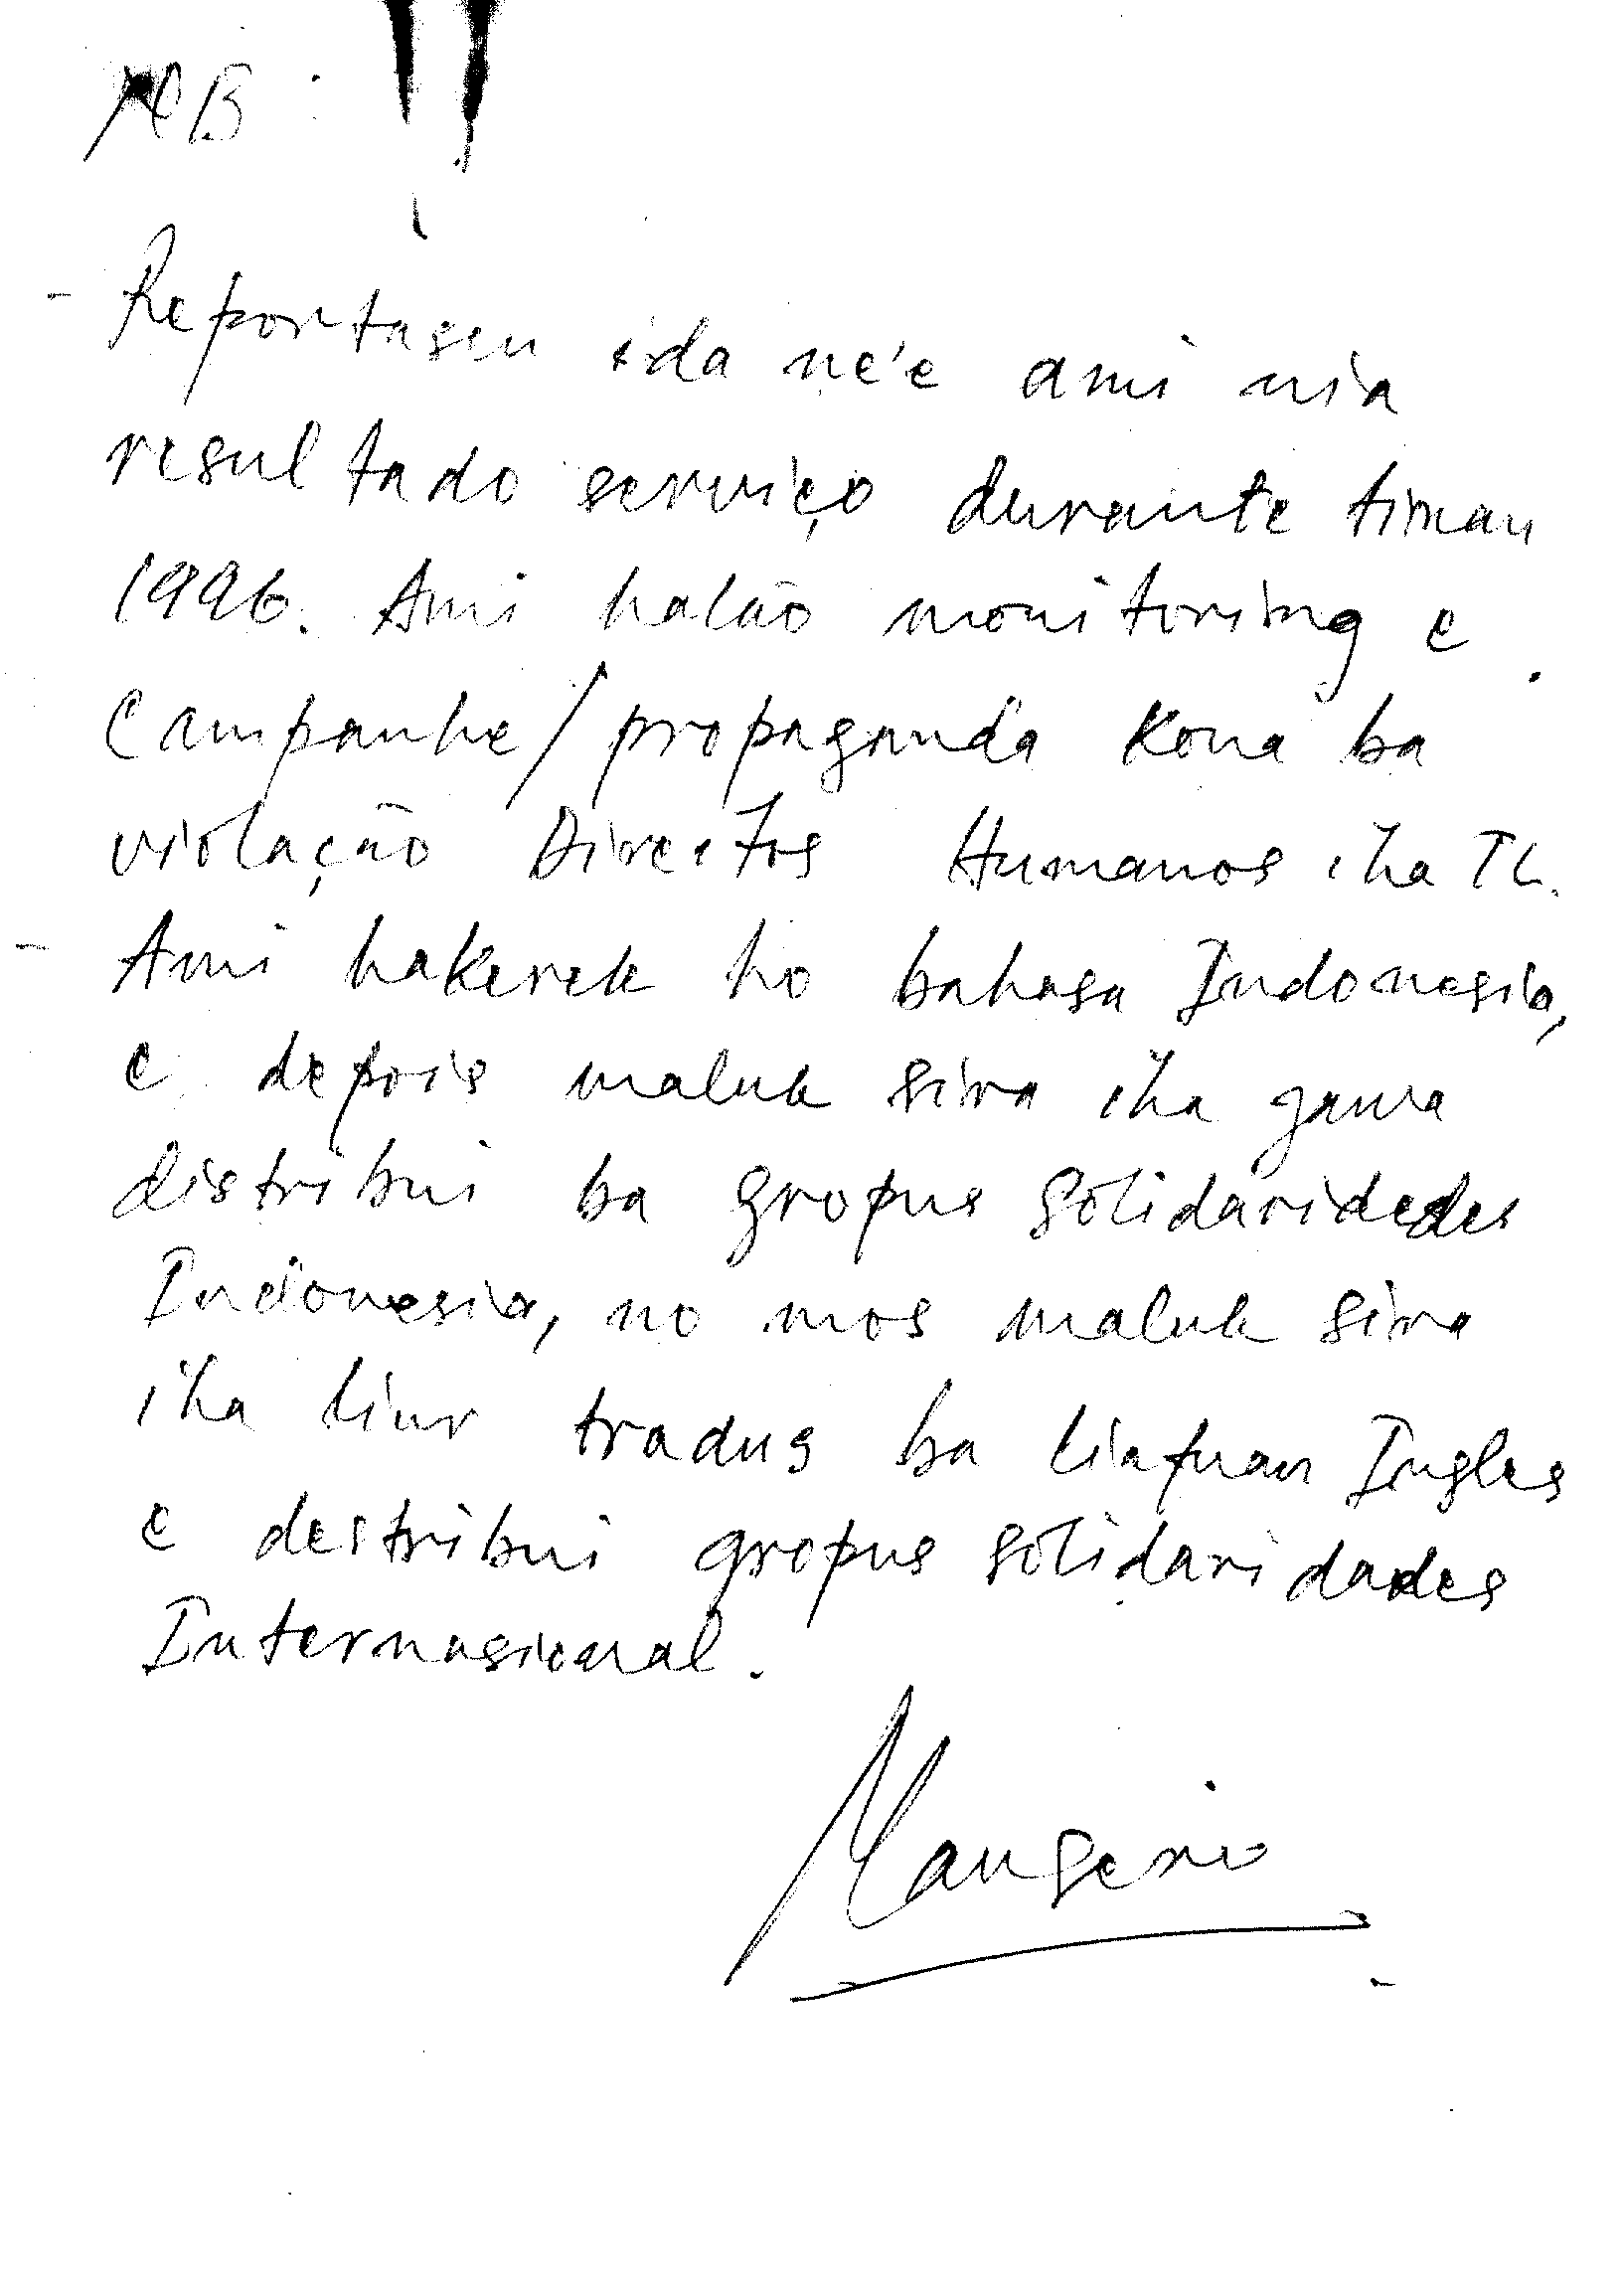 NB :
- Reportasen ida ne'e ami nia
resultado serviço durante tinan
1996. Ami halao monitoring e
Campanhe/propaganda Kona ba
violação Direitos Humanos iha TL.
- Ami hakerek ho bahasa Indonesia,
e depois maluk sira iha jawa
distribui ba gropus solidaridades
Indonesia, no mos maluk sira
iha liur tradus ba liafuan Ingles
e destribui gropus solidaridades
Internasional.